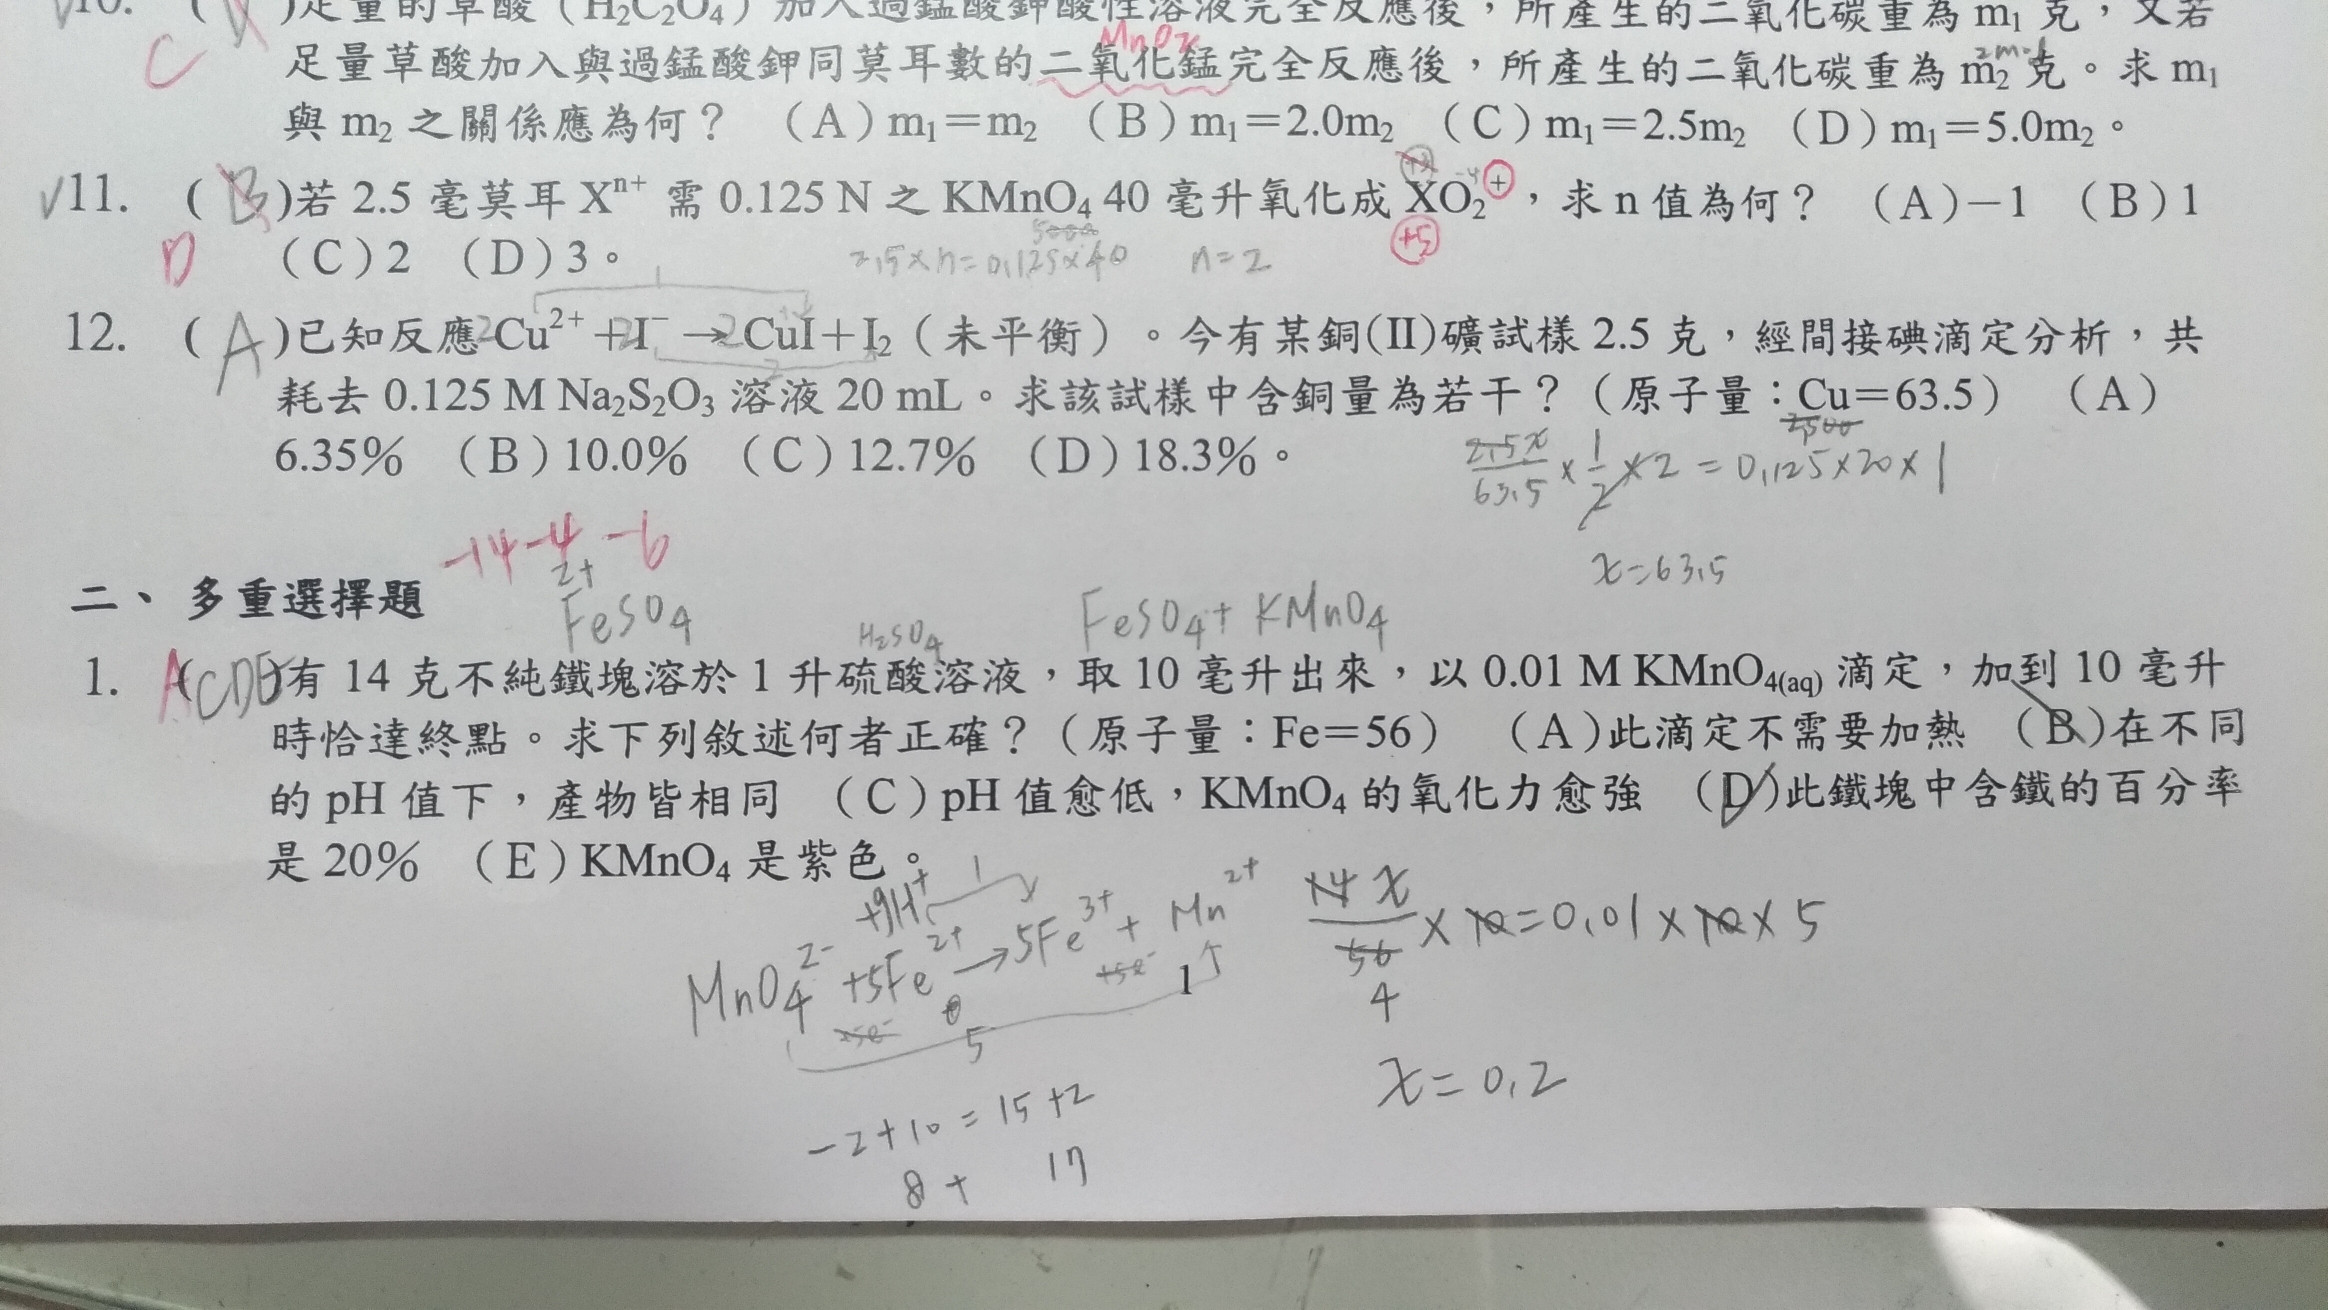 10. ( )足量的草酸（H₂C₂O₄）加入過錳酸鉀酸性溶液完全反應後，所產生的二氧化碳重為 m₁ 克，又若
C
MnO₂
足量草酸加入與過錳酸鉀同莫耳數的二氧化錳完全反應後，所產生的二氧化碳重為 m₂ 克。求 m₁
與 m₂ 之關係應為何？ （A）m₁＝m₂ （B）m₁＝2.0m₂ （C）m₁＝2.5m₂ （D）m₁＝5.0m₂。
√11. ( B )若 2.5 毫莫耳 Xⁿ⁺ 需 0.125 N 之 KMnO₄ 40 毫升氧化成 XO₂⁺，求 n 值為何？ （A）−1 （B）1
D
（C）2 （D）3。
2.5×n=0.125×40 n=2
+5
12. ( A )已知反應2Cu²⁺+2I⁻→2CuI+I₂（未平衡）。今有某銅(II)礦試樣 2.5 克，經間接碘滴定分析，共
耗去 0.125 M Na₂S₂O₃ 溶液 20 mL。求該試樣中含銅量為若干？（原子量：Cu＝63.5） （A）
6.35% （B）10.0% （C）12.7% （D）18.3%。
2.5x/63.5 × 1/2 ×2 = 0.125×20×1
x=63.5
-14 -4 -6
二、 多重選擇題
2+
FeSO₄
FeSO₄+ KMnO₄
H₂SO₄
1. (ACDE)有 14 克不純鐵塊溶於 1 升硫酸溶液，取 10 毫升出來，以 0.01 M KMnO₄(aq) 滴定，加到 10 毫升
時恰達終點。求下列敘述何者正確？（原子量：Fe＝56） （A）此滴定不需要加熱 （B）在不同
的 pH 值下，產物皆相同 （C）pH 值愈低，KMnO₄ 的氧化力愈強 （D）此鐵塊中含鐵的百分率
是 20% （E）KMnO₄ 是紫色。
MnO₄²⁻ +5Fe²⁺ → 5Fe³⁺ + Mn²⁺
5
1
14x/56 × 10 = 0.01×10×5
4
x=0.2
-2+10 = 15+2
8+ 17